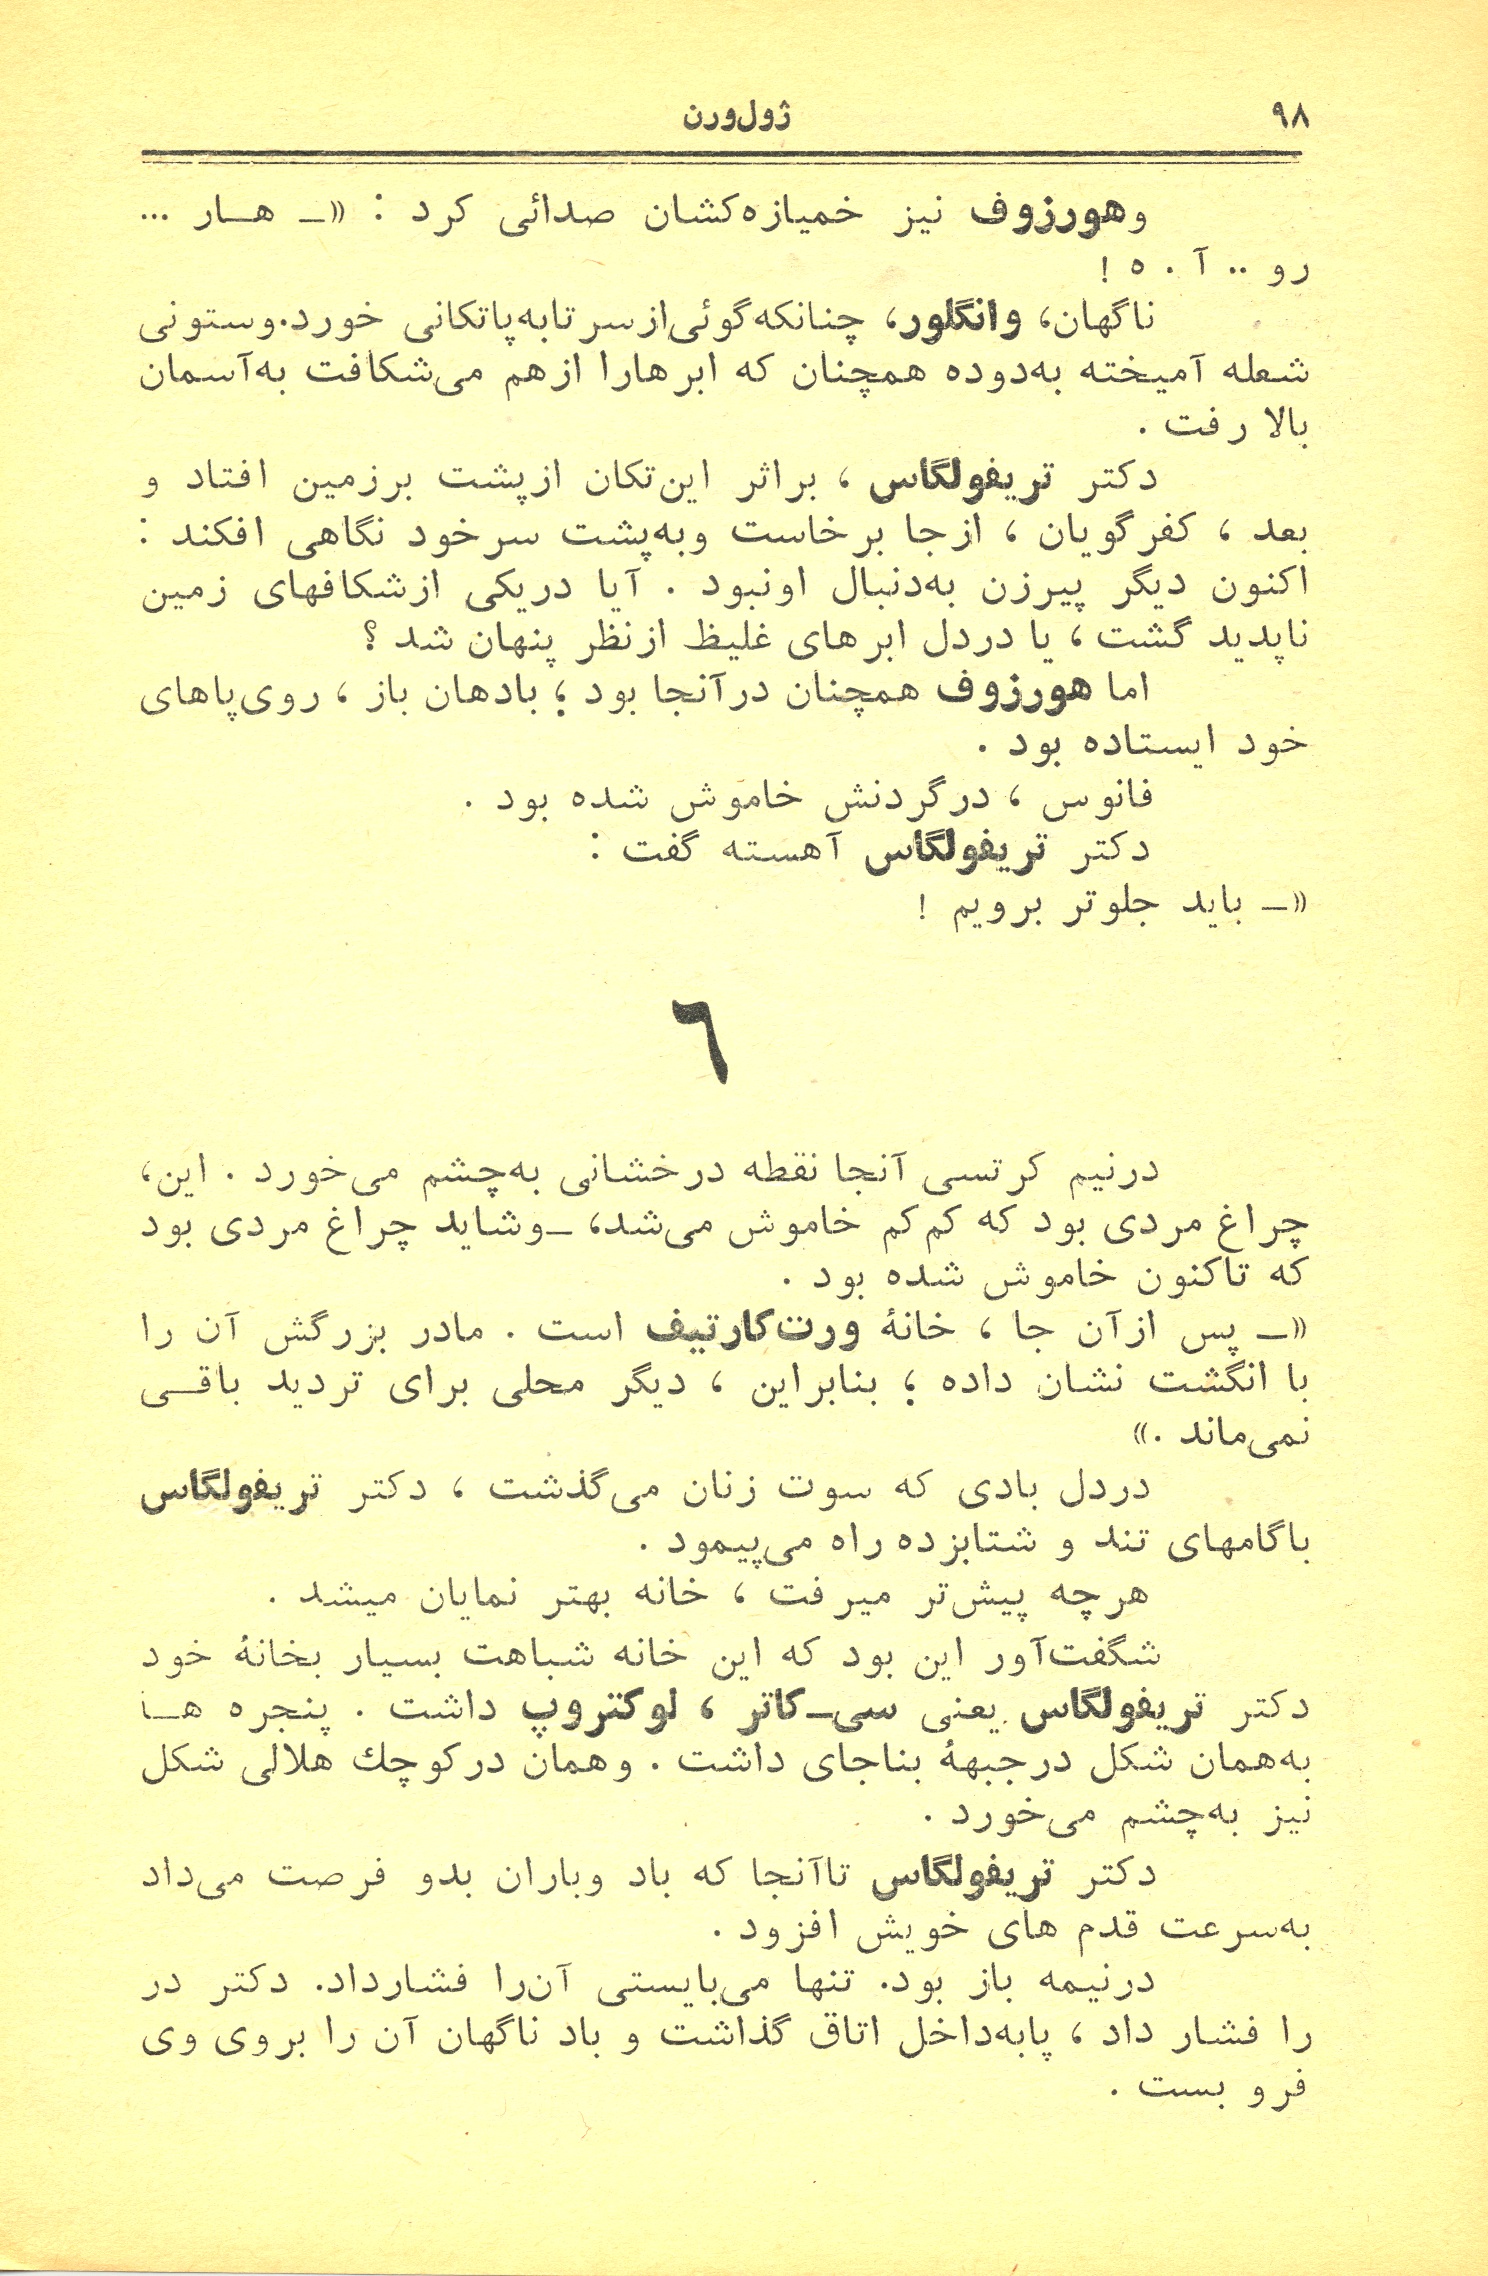 ۹۸
ژول‌ورن
وهورزوف نیز خمیازه‌کشان صدائی کرد : «ــ هـار ...
رو .. آ . ه !
ناگهان، وانگلور، چنانکه‌گوئی‌از‌سر تا‌به‌پاتکانی خورد.وستونی
شعله آمیخته به‌دوده همچنان که ابرهارا ازهم می‌شکافت به‌آسمان
بالا رفت .
دکتر تریفولگاس ، براثر این‌تکان ازپشت برزمین افتاد و
بعد ، کفرگویان ، ازجا برخاست وبه‌پشت سرخود نگاهی افکند :
اکنون دیگر پیرزن به‌دنبال اونبود . آیا دریکی ازشکافهای زمین
ناپدید گشت ، یا دردل ابرهای غلیظ ازنظر پنهان شد ؟
اما هورزوف همچنان درآنجا بود ؛ بادهان باز ، روی‌پاهای
خود ایستاده بود .
فانوس ، درگردنش خاموش شده بود .
دکتر تریفولگاس آهسته گفت :
«ــ باید جلوتر برویم !
٦
درنیم کرتسی آنجا نقطه درخشانی به‌چشم می‌خورد . این،
چراغ مردی بود که کم‌کم خاموش می‌شد، ــوشاید چراغ مردی بود
که تاکنون خاموش شده بود .
«ــ پس ازآن جا ، خانهٔ ورت‌کارتیف است . مادر بزرگش آن را
با انگشت نشان داده ؛ بنابراین ، دیگر محلی برای تردید باقـی
نمی‌ماند .»
دردل بادی که سوت زنان می‌گذشت ، دکتر تریفولگاس
باگامهای تند و شتابزده راه می‌پیمود .
هرچه پیش‌تر میرفت ، خانه بهتر نمایان میشد .
شگفت‌آور این بود که این خانه شباهت بسیار بخانهٔ خود
دکتر تریفولگاس یعنی سی‌ــ‌کاتر ، لوکتروپ داشت . پنجره هـا
به‌همان شکل درجبههٔ بناجای داشت . وهمان درکوچك هلالی شکل
نیز به‌چشم می‌خورد .
دکتر تریفولگاس تاآنجا که باد وباران بدو فرصت می‌داد
به‌سرعت قدم های خویش افزود .
درنیمه باز بود. تنها می‌بایستی آن‌را فشارداد. دکتر در
را فشار داد ، پابه‌داخل اتاق گذاشت و باد ناگهان آن را بروی وی
فرو بست .